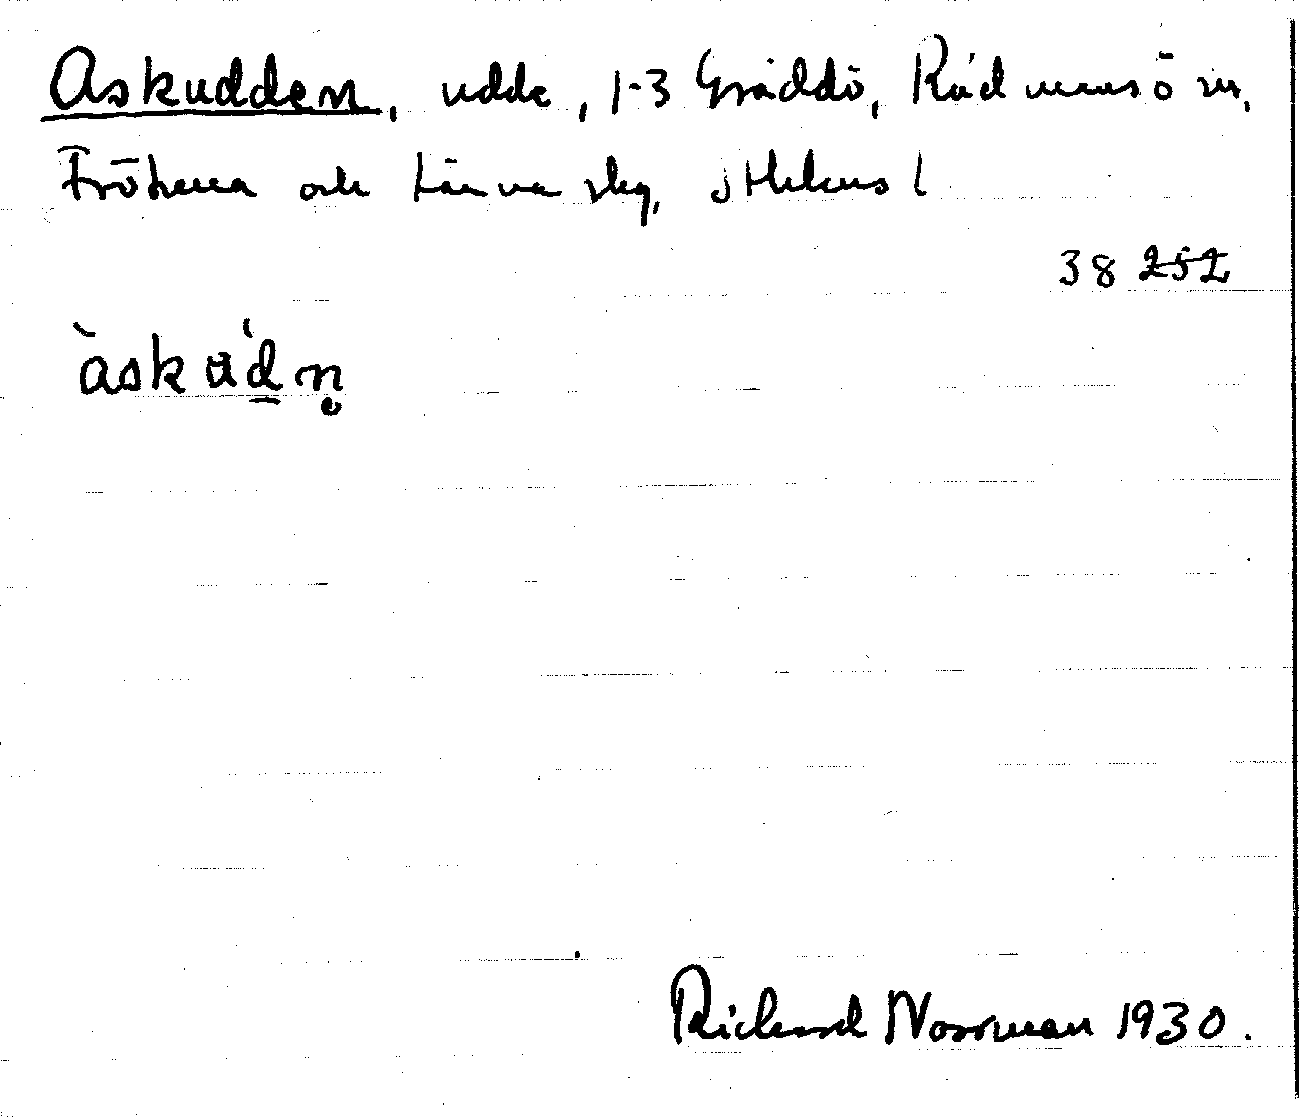 Askudden, udde, 1-3 Gräddö, Rådmansö sn,
Fröhusa och Länna skg, Sthlms l
38 252
àskàd̲n̥
Richard Norrman 1930.